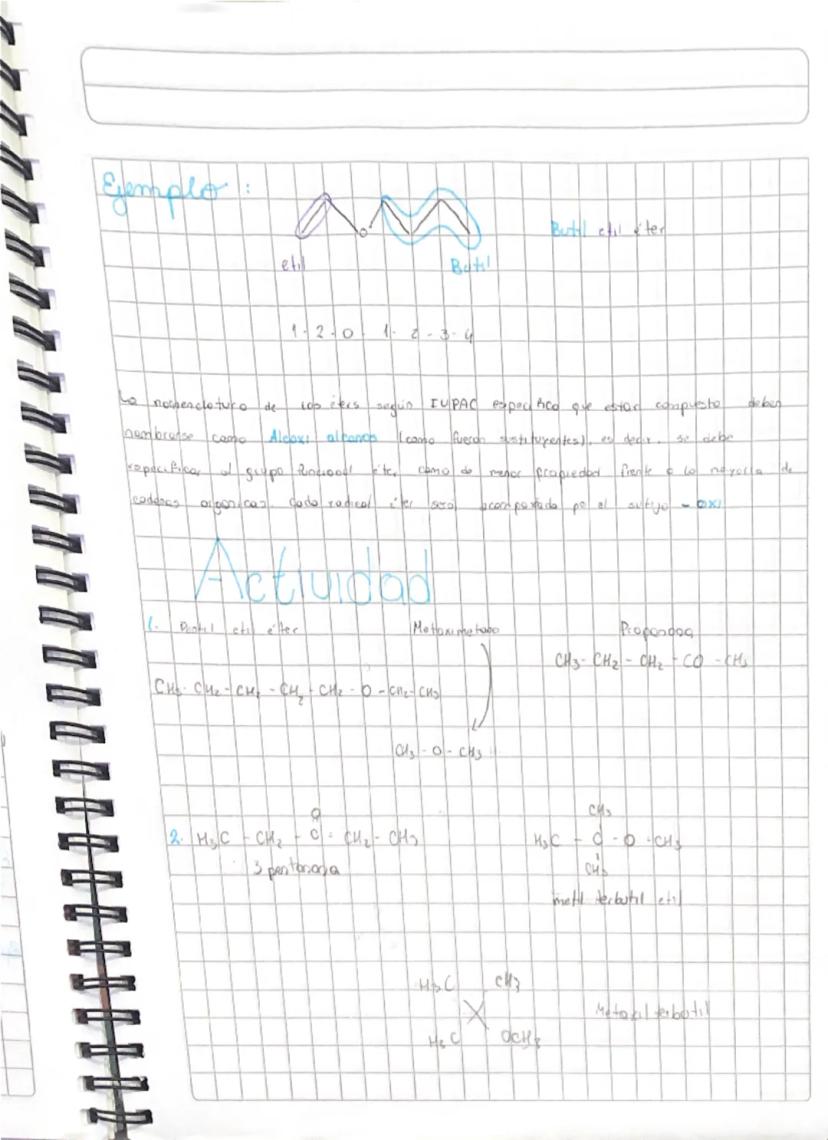 Ejemplo:
etil
Butil
Butil etil éter
1-2-O-1-2-3-4
La nomenclatura de los éters según IUPAC especifica que estar compuesto deben
nombrarse como Alcoxi alcanos (como fueran sustituyentes), es decir, se debe
especificar al grupo funcional éter, como de menor propiedad frente a la mayoría de
cadenas orgánicas. cada radical éter será acompañada po el sufijo - oxi
Actividad
1. Pentil etil éter
Metoximetano
Propanona
CH3-CH2-CH2-CO-CH3
CH3-CH2-CH2-CH2-CH2-O-CH2-CH3
CH3-O-CH3
O
2. H3C-CH2-C-CH2-CH3
3 pentanona
CH3
H3C-C-O-CH3
CH3
metil terbutil etil
H3C CH3
H3C OCH3
Metoxil terbutil